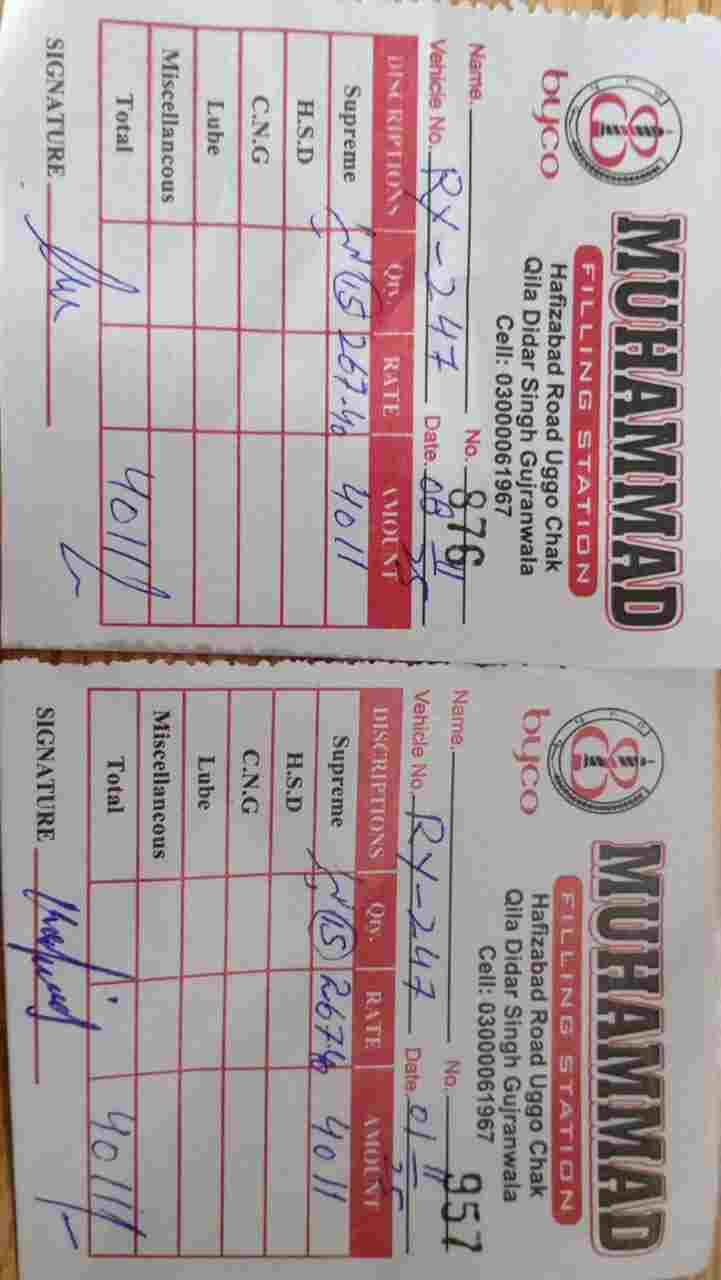 byco
MUHAMMAD
FILLING STATION
Hafizabad Road Uggo Chak
Qila Didar Singh Gujranwala
Cell: 03000061967
Name. No. 876
Vehicle No. RY-247 Date. 08 11 25
DISCRIPTIONS Qty. RATE AMOUNT
Supreme 15 267.40 4011
H.S.D
C.N.G
Lube
Miscellancous
Total 4011/
SIGNATURE
byco
MUHAMMAD
FILLING STATION
Hafizabad Road Uggo Chak
Qila Didar Singh Gujranwala
Cell: 03000061967
Name. No. 957
Vehicle No. RY-247 Date. 01-11 25
DISCRIPTIONS Qty. RATE AMOUNT
Supreme 15 267.40 4011
H.S.D
C.N.G
Lube
Miscellancous
Total 4011/
SIGNATURE